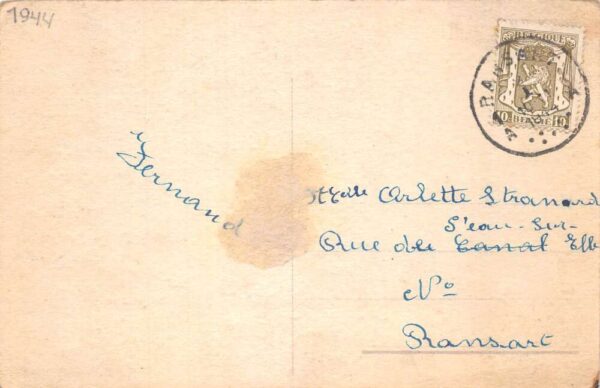 1944
BELGIQUE
10 BELGIE 10
RANSART
Fernand
Melle Arlette Stranard
S'eau-Sur-
Rue du Canal Elb
No
Ransart